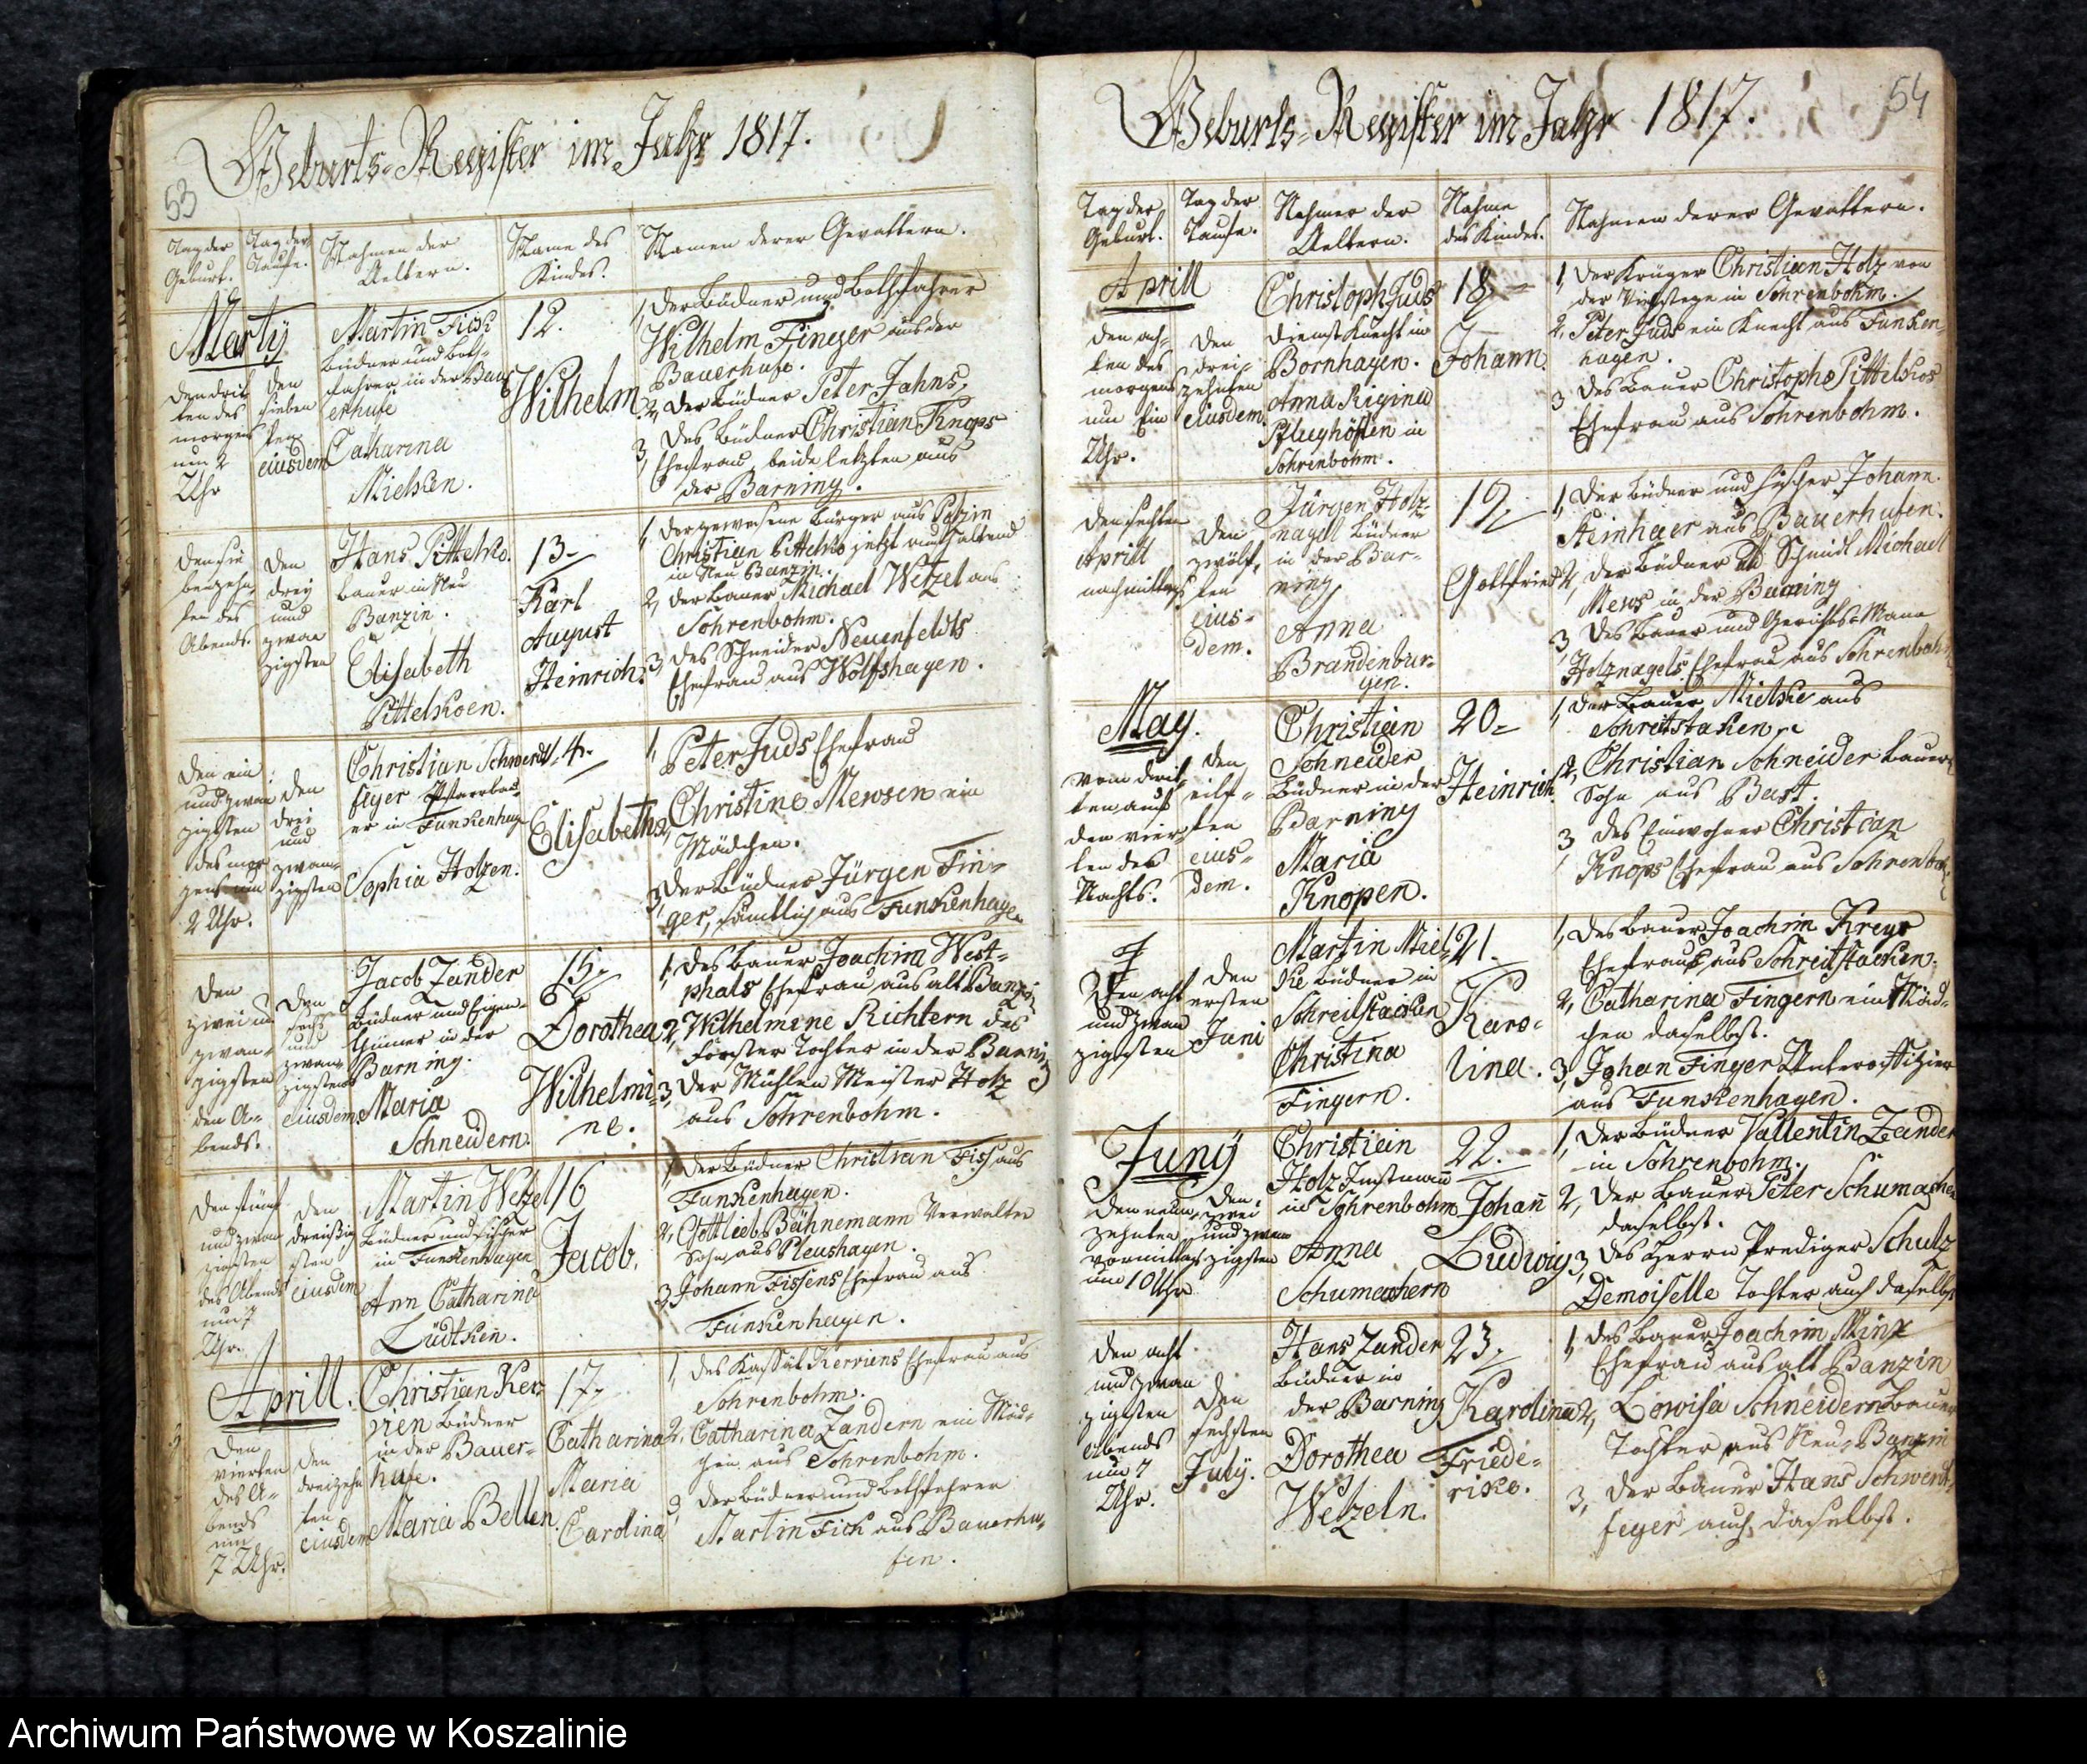 53
Geburts-Register im Jahr 1817.
Tag der Geburt.
Tag der Taufe.
Nahmen der Aeltern.
Name des Kindes.
Namen derer Gevattern.
Martij
den drit-
ten des
morgens
um 2
Uhr
den
sieben
ten
eiusdem
Martin Fick
Büdner und Both-
fahrer in der Bau-
erhufe
Catharina
Mielken.
12.
Wilhelm
1, Der Büdner und Bothsfahrer
Wilhelm Finger aus der
Bauerhufe.
2, Der Büdner Peter Jahns,
3, des Büdner Christian Knops
Ehefrau, beide letzten aus
der Barning.
den sie
benzehn
ten des
Abends.
den
drey
und
zwan
zigsten
Hans Pittelko.
Bauer in Neu
Banzin.
Elisabeth
Pittelkoen.
13
Karl
August
Heinrich.
1, der gewesene Bürger aus
Christian Pittelko jetzt aufhaltend
in Neu Banzin.
2, der Bauer Michael Wetzel aus
Sohrenbohm.
3, des Schneider Neuenfeldts
Ehefrau aus Wolfshagen.
den ein
und zwan
zigsten
des mor
gens um
2 Uhr.
den
drei
und
zwan-
zigsten
Christian Schwerdt-
feger Pfarrbau-
er in Funkenhag
Sophia Holzen.
14.
Elisabeth
1, Peter Juds Ehefrau
2, Christine Mewsen ein
Mädchen.
3, Der Büdner Jürgen Fin-
ger, sämtlich aus Funkenhagen
den
zwei u
zwan-
zigsten
den A-
bends.
den
sechs
und
zwan-
zigsten
eiusdem.
Jacob Zander
Büdner und Eigen-
thümer in der
Barning.
Maria
Schneidern.
15,
Dorothea
Wilhelmi-
ne.
1, des Bauer Joachim West-
phals Ehefrau aus alt Banzin
2, Wilhelmine Richtern des
Förster Tochter in der Barning
3, Der Mühlen Meister Holz
aus Sohrenbohm.
den fünf
und zwan
zigsten
des Abends
um 7
Uhr.
den
dreißig
sten
eiusdem
Martin Wetzel
Büdner und Fischer
in Funkenhagen
Ann Catharina
Lüdtken.
16
Jacob.
1, der Büdner Christian Fiss aus
Funkenhagen.
2, Gottlieb Bähnemann Verwalter
Sohn aus Pleushagen.
3, Johann Fissens Ehefrau aus
Funkenhagen.
Aprill.
den
vierten
des A-
bends
um
7 Uhr.
den
dreizehn
ten
eiusdem
Christian Ker-
nen Büdner
in der Bauer-
hufe.
Maria Bellen.
17,
Catharina
Maria
Carolina
1, des Kerviens Ehefrau aus
Sohrenbohm.
2, Catharina Zandern ein Mäd-
gen aus Sohrenbohm.
3, der Büdner und Bothsfahrer
Martin Fick aus Bauerhu-
fen.
54
Geburts-Register im Jahr 1817.
Tag der Geburt.
Tag der Taufe.
Nahmen der Aeltern.
Nahme des Kindes.
Nahmen derer Gevattern.
Aprill
den ach-
ten des
morgens
um Ein
Uhr.
den
drei-
zehnten
eiusdem
Christoph Juds
Dienst Knecht in
Bornhagen.
Anna Rigina
Pflughöften in
Sohrenbohm.
18,
Johann.
1, der Krüger Christian Holz von
der in Sohrenbohm.
2, Peter Juds ein Knecht aus Funken-
hagen.
3, des Bauer Christoph Pittelkos
Ehefrau aus Sohrenbohm.
den sechten
Aprill
nachmittags
den
zwölf-
ten
eius-
dem.
Jürgen Holz-
nagel Büdner
in der Bar-
ning
Anna
Brandenbur-
gen.
19,
Gottfried
1, Der Büdner und Fischer Johann
Steinhaer aus Bauerhufen.
2, der Büdner und Schmidt Michael
Mews in der Barning
3, des Bauer und Gerichts-Mann
Holznagels Ehefrau aus Sohrenbohm
May.
vom drit-
ten auf
den vier-
ten des
Nachts.
den
eilf-
ten
eius-
dem.
Christian
Schneider
Büdner in der
Barning
Maria
Knopen.
20
Heinrich
1, der Bauer Mielke aus
Schreitstaken
2, Christian Schneider Bauer
Sohn aus Bast.
3, des Einwohner Christian
Knops Ehefrau aus Sohrenboh
den acht
und zwan
zigsten
den
ersten
Juni
Martin Miel-
ke Büdner in
Schreitstacken
Christina
Fingern.
21.
Karo-
lina.
1, des Bauer Joachim Kreys
Ehefrau aus Schreitstacken.
2, Catharina Fingern ein Mäd-
chen daselbst.
3, Johan Finger Unteroffizier
aus Funkenhagen.
Juny
den neun-
zehnten
vormittag
um 10 Uhr
den
zwei
und zwan
zigsten
Christian
Holz Instmann
in Sohrenbohm
Anna
Schumachern
22.
Johan̄
Ludwig
1, der Büdner Vallentin Zander
in Sohrenbohm.
2, der Bauer Peter Schumacher
daselbst.
3, des Herrn Prediger Schulz
Demoiselle Tochter auch daselbst
den acht
und zwan
zigsten
Abends
um 7
Uhr.
den
sechsten
July.
Hans Zander
Büdner in
der Barning
Dorothea
Wetzeln.
23,
Karolina
Friede-
rike.
1, des Bauer Joachim Minx
Ehefrau aus alt Banzin
2, Lowisa Schneidern Bauer
Tochter aus Neu-Banzin
3, der Bauer Hans Schwerdt-
feger auch daselbst.
Archiwum Państwowe w Koszalinie